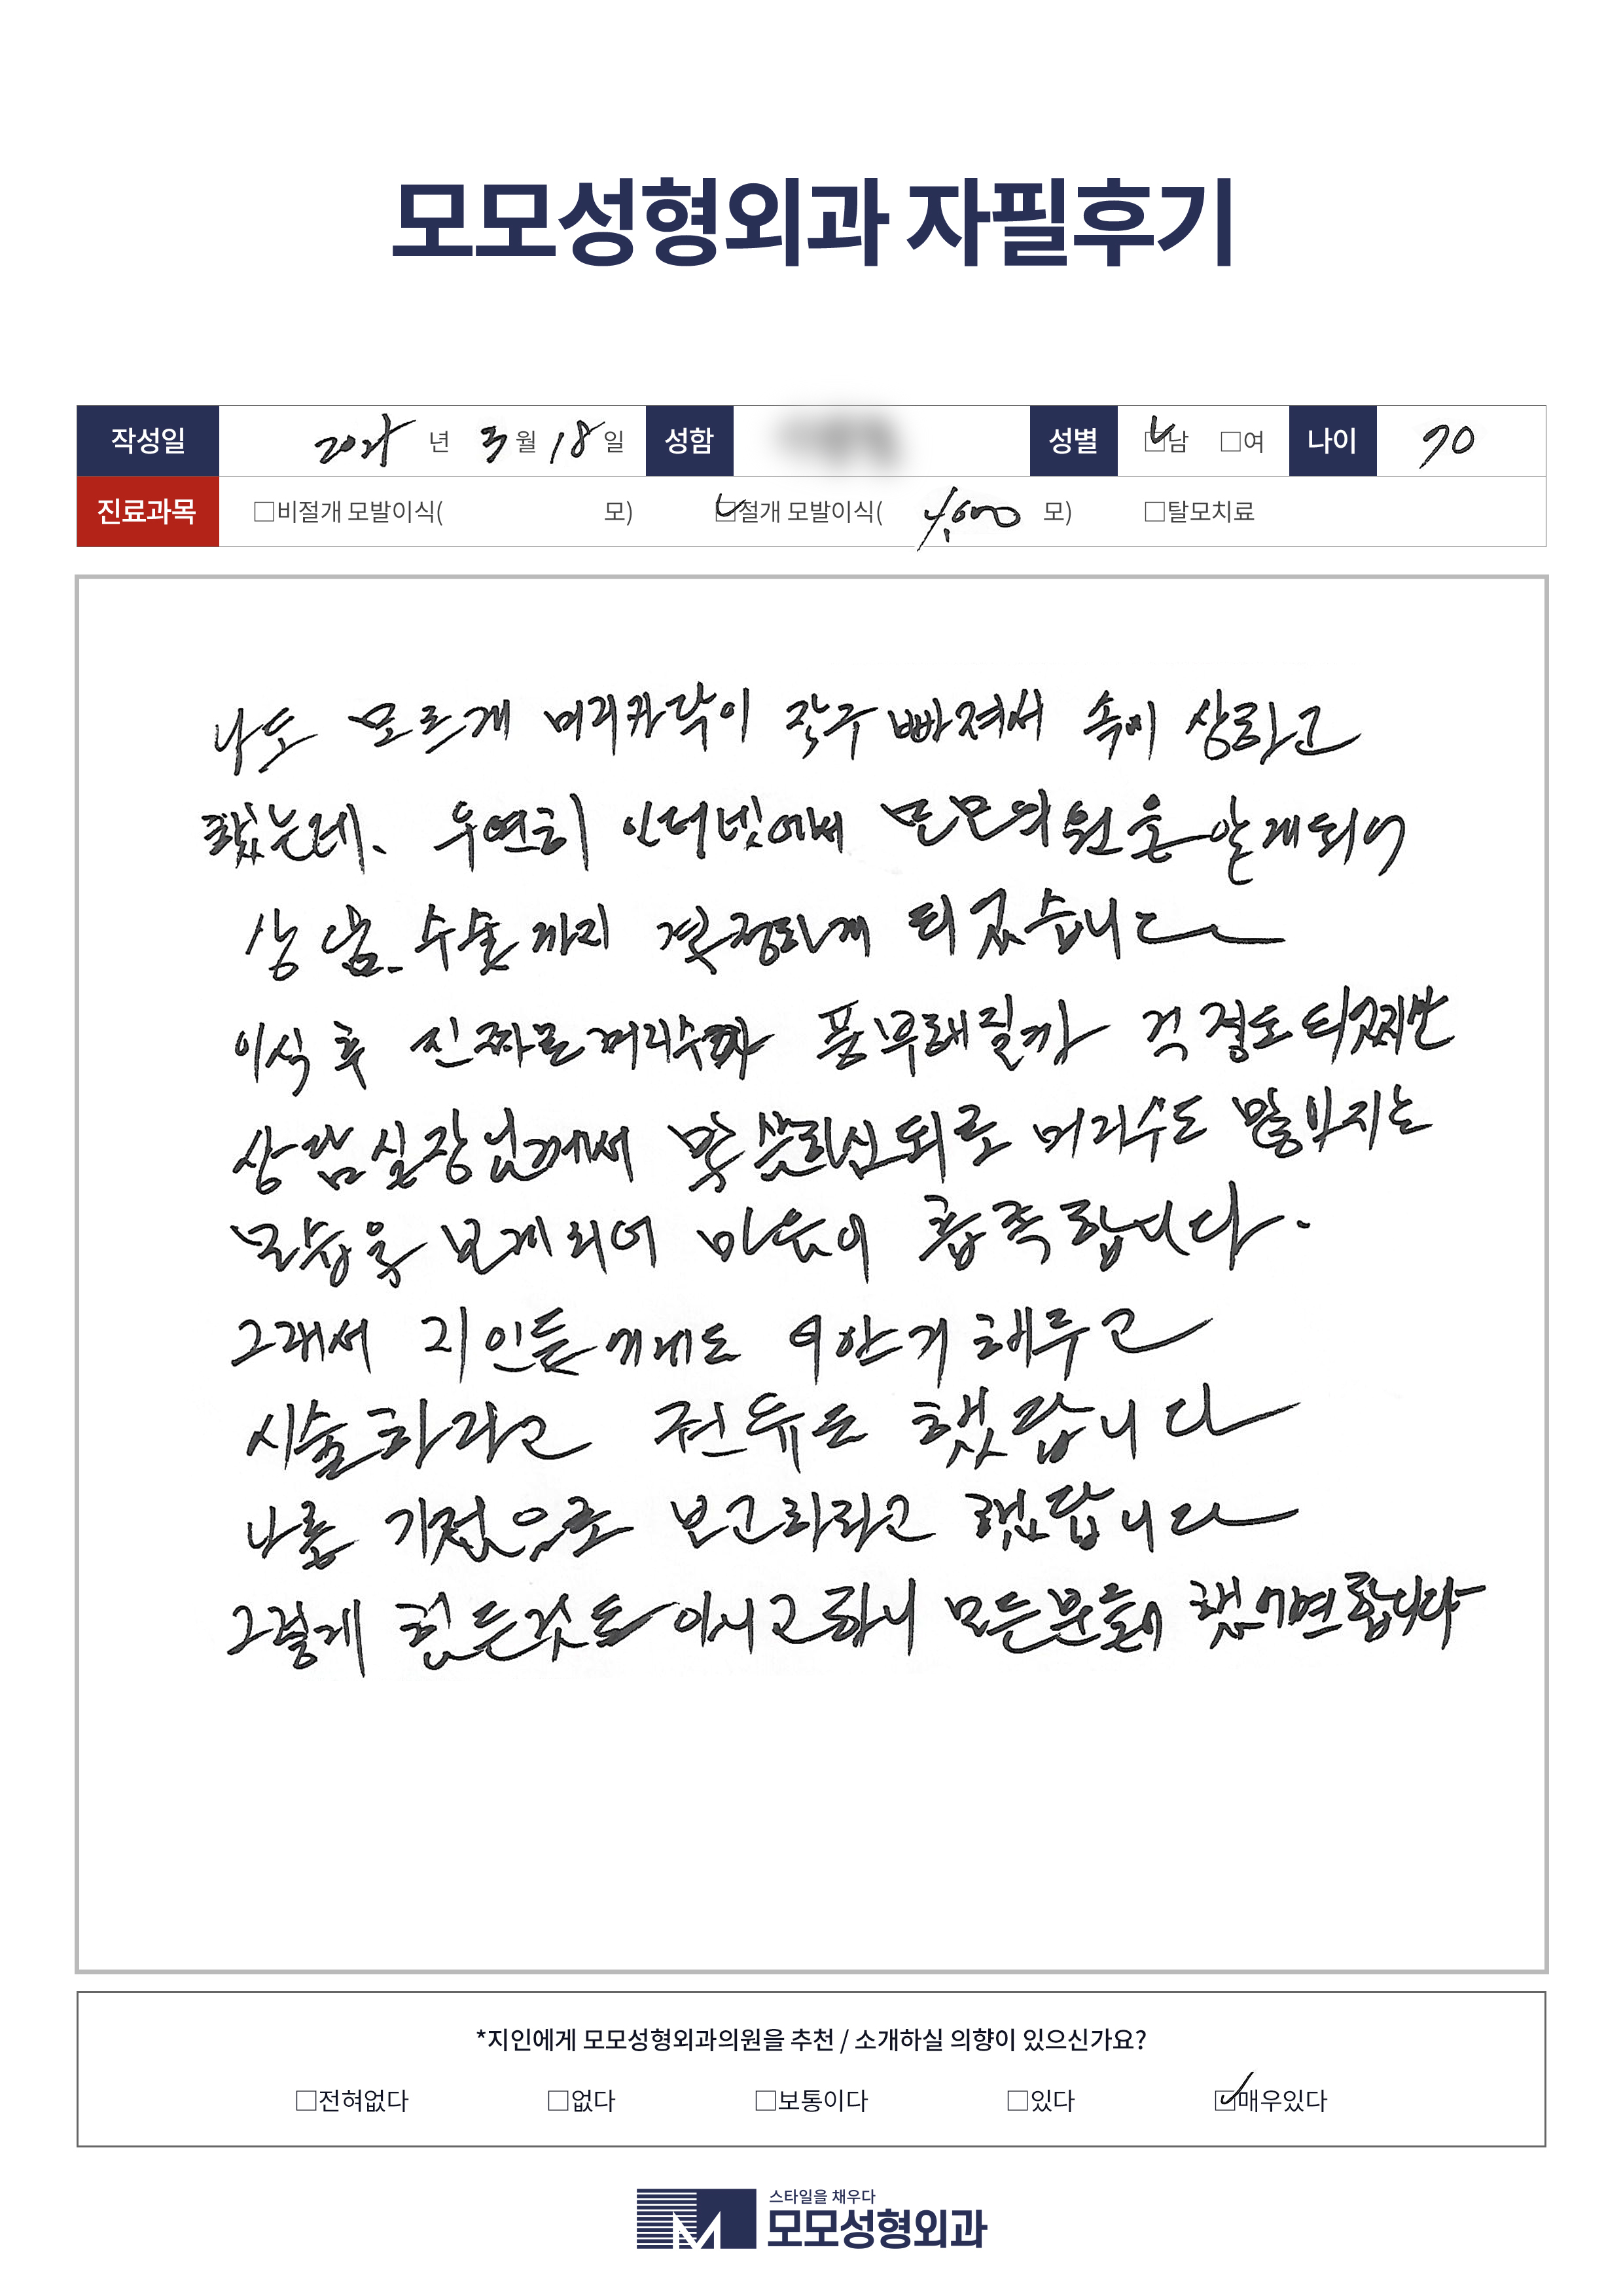 모모성형외과 자필후기
작성일 년 3월 18일 성함 성별 ☑남 □여 나이 70
진료과목 □비절개 모발이식( 모) ☑절개 모발이식( 4,000 모) □탈모치료
나도 모르게 머리카락이 자꾸 빠져서 속이 상하고
했는데. 우연히 인터넷에서 모모의원을 알게되어
상담. 수술까지 결정하게 되었습니다
이식 후 진짜로 머리수가 풍부해질까 걱정도 되었지만
상담실장님께서 말씀하신대로 머리수도 많아지는
모습을 보게되어 마음이 흡족합니다.
그래서 지인들에게도 이야기 해주고
시술하라고 권유도 했답니다
나를 기점으로 보고하라고 했답니다
그렇게 힘든것도 아니고하니 모든분들이 했으면합니다
*지인에게 모모성형외과의원을 추천 / 소개하실 의향이 있으신가요?
□전혀없다 □없다 □보통이다 □있다 ☑매우있다
스타일을 채우다
모모성형외과